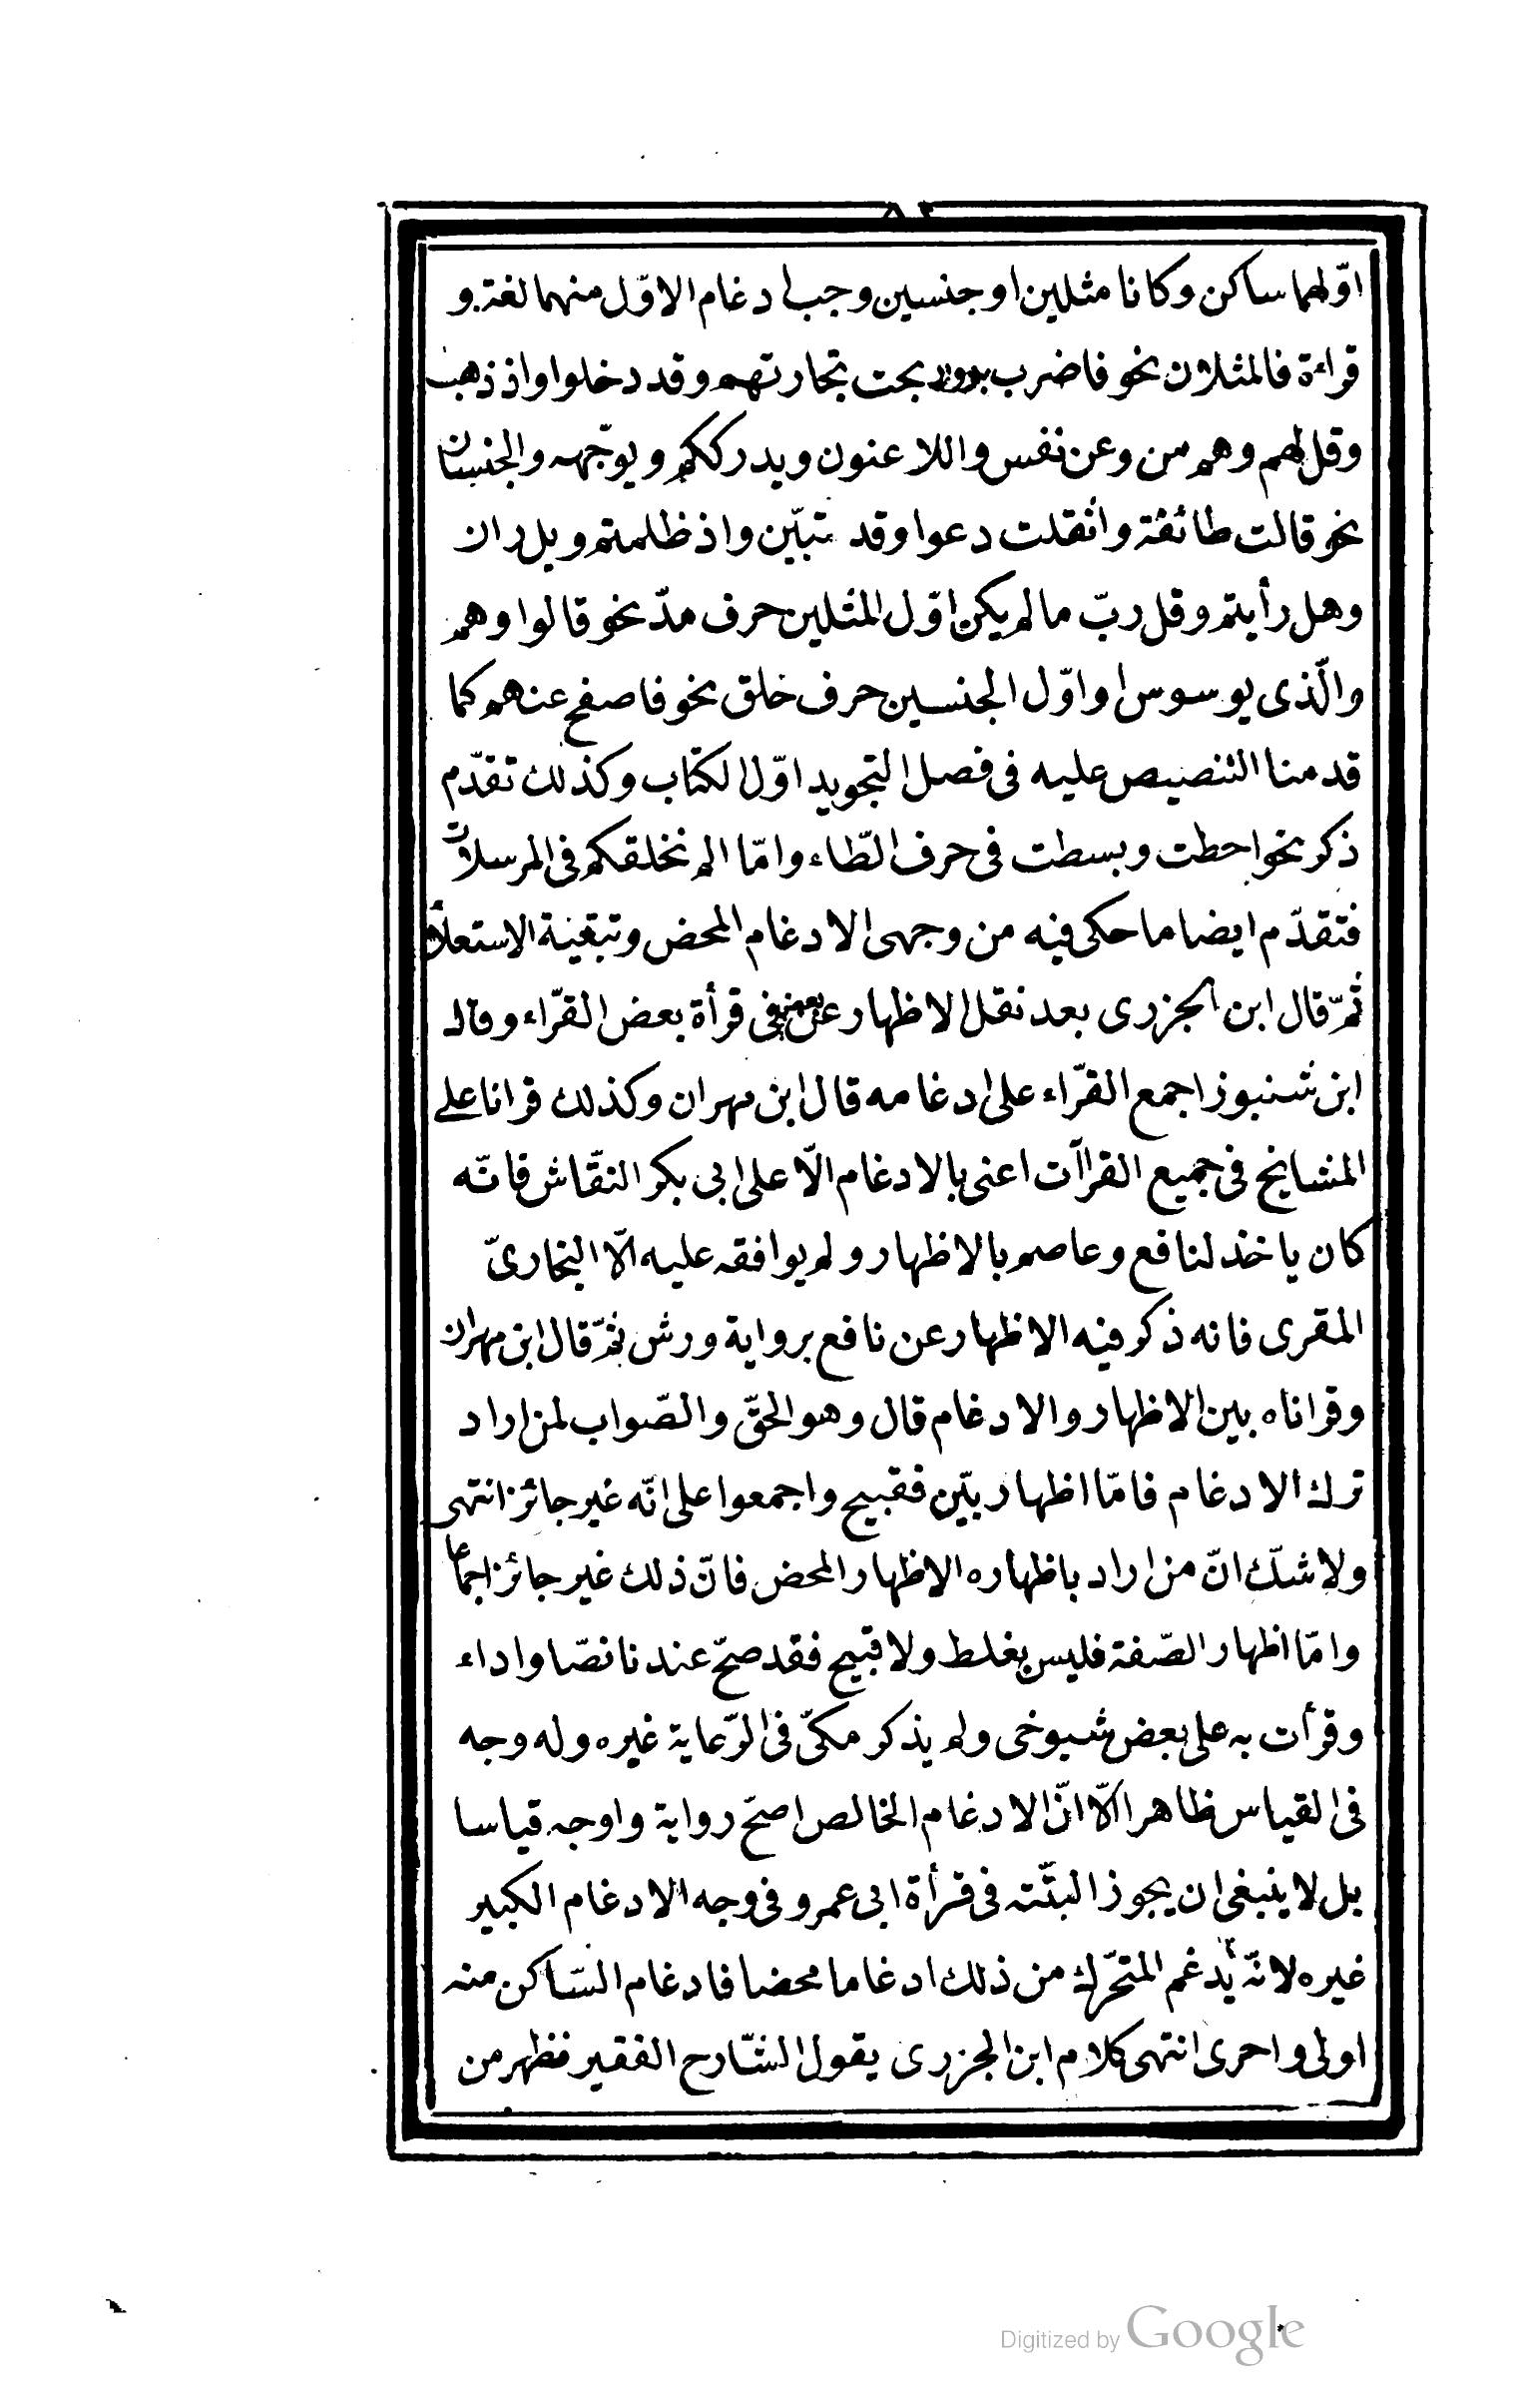 اوّلهما ساكن وكانا مثلين او جنسين وجب ادغام الاوّل منهما لغة و
قراءة فالمثلان نحو فاضرب به وربحت تجارتهم وقد دخلوا واذ ذهب
وقل لهم وهم من وعن نفس واللاعنون ويدرككم ويوجّهه والجنسان
نحو قالت طائفة واثقلت دعوا وقد تبيّن واذ ظلمتم وبل ران
وهل رأيتم وقل ربّ مالم يكن اوّل المثلين حرف مدّ نحو قالوا وهم
والّذى يوسوس او اوّل الجنسين حرف خلق نحو فاصفح عنهم كما
قدمنا التنصيص عليه فى فصل التجويد اوّل الكتاب وكذلك تقدّم
ذكر نحو احطت وبسطت فى حرف الطّاء وامّا الم نخلقكم فى المرسلات
فتقدّم ايضا ما حكى فيه من وجهى الادغام المحض وتبقية الاستعلاء
ثمّ قال ابن الجزرى بعد نقل الاظهار عن بعض فى قرأة بعض القرّاء وقال
ابن شنبوذ اجمع القرّاء على ادغامه قال ابن مهران وكذلك قرانا على
المشايخ فى جميع القراآت اعنى بالادغام الّا على ابى بكر النقّاش فانّه
كان ياخذ لنافع وعاصم بالاظهار ولم يوافقه عليه الّا البخارىّ
المقرى فانه ذكر فيه الاظهار عن نافع برواية ورش ثمّ قال ابن مهران
وقراناه بين الاظهار والادغام قال وهو الحقّ والصّواب لمن اراد
ترك الادغام فامّا اظهار بيّن فقبيح واجمعوا على انّه غير جائز انتهى
ولا شكّ انّ من اراد باظهاره الاظهار المحض فانّ ذلك غير جائز اجماعا
وامّا اظهار الصّفة فليس بغلط ولا قبيح فقد صحّ عندنا نصّا واداء
وقرأت به على بعض شيوخى ولم يذكر مكّىّ فى الرّعاية غيره وله وجه
فى القياس ظاهر الّا انّ الادغام الخالص اصحّ رواية واوجه قياسا
بل لا ينبغى ان يجوز البتّته فى قرأة ابى عمرو فى وجه الادغام الكبير
غيره لانّه يدغم المتحّرك من ذلك ادغاما محضا فادغام السّاكن منه
اولى واحرى انتهى كلام ابن الجزرى يقول الشّارح الفقير فظهر من
Digitized by Google